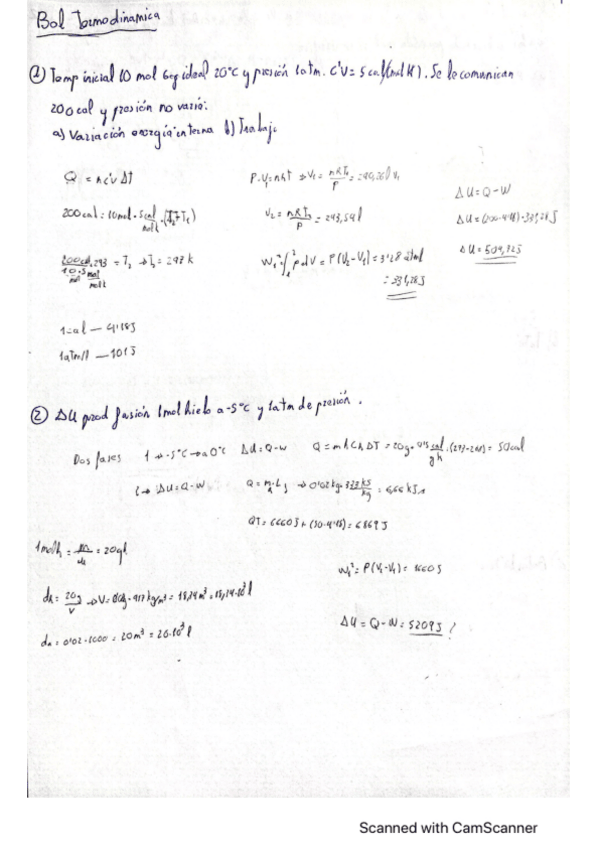 Bol Termodinamica
① Temp inicial 10 mol Gas ideal 20°C y presión 1 atm. C'V = 5 cal/(mol K). Se le comunican
200 cal y presión no varió:
a) Variación energía interna b) Trabajo
Q = n c'v ΔT
200 cal = 10 mol · 5 cal/molK · (T2 - T1)
+ 293 = T2 → T2 = 297 K
1 cal — 4'18 J
1 atm/l — 101 J
P·V1 = nRT → V1 = nRT1/P = 240,26 l
V2 = nRT2/P = 243,54 l
W = ∫ p dV = P(V2 - V1) = 3'28 atm l
= 331,28 J
ΔU = Q - W
ΔU = (200·4'18) - 331,28 J
ΔU = 504,72 J
② ΔU prod fusión 1 mol hielo a -5°C y 1 atm de presión.
Dos fases 1 → -5°C → a 0°C ΔU = Q - W Q = m ch ΔT = 20g · 0'5 cal/g K · (273 - 268) = 50 cal
ΔU = Q - W Q = m · Lf → 0'02 kg · 333 kJ/kg = 6,66 kJ
QT = 6660 J + (50·4'18) = 6869 J
= 20 g
W = P(V - V1) = 1660 J
dh = 20g/V → V = · 917 kg/m³ = 18,34 m³ = 18,34·10³ l
da = 0'02 · 1000 = 20 m³ = 20·10³ l
ΔU = Q - W = 5209 J ?
Scanned with CamScanner